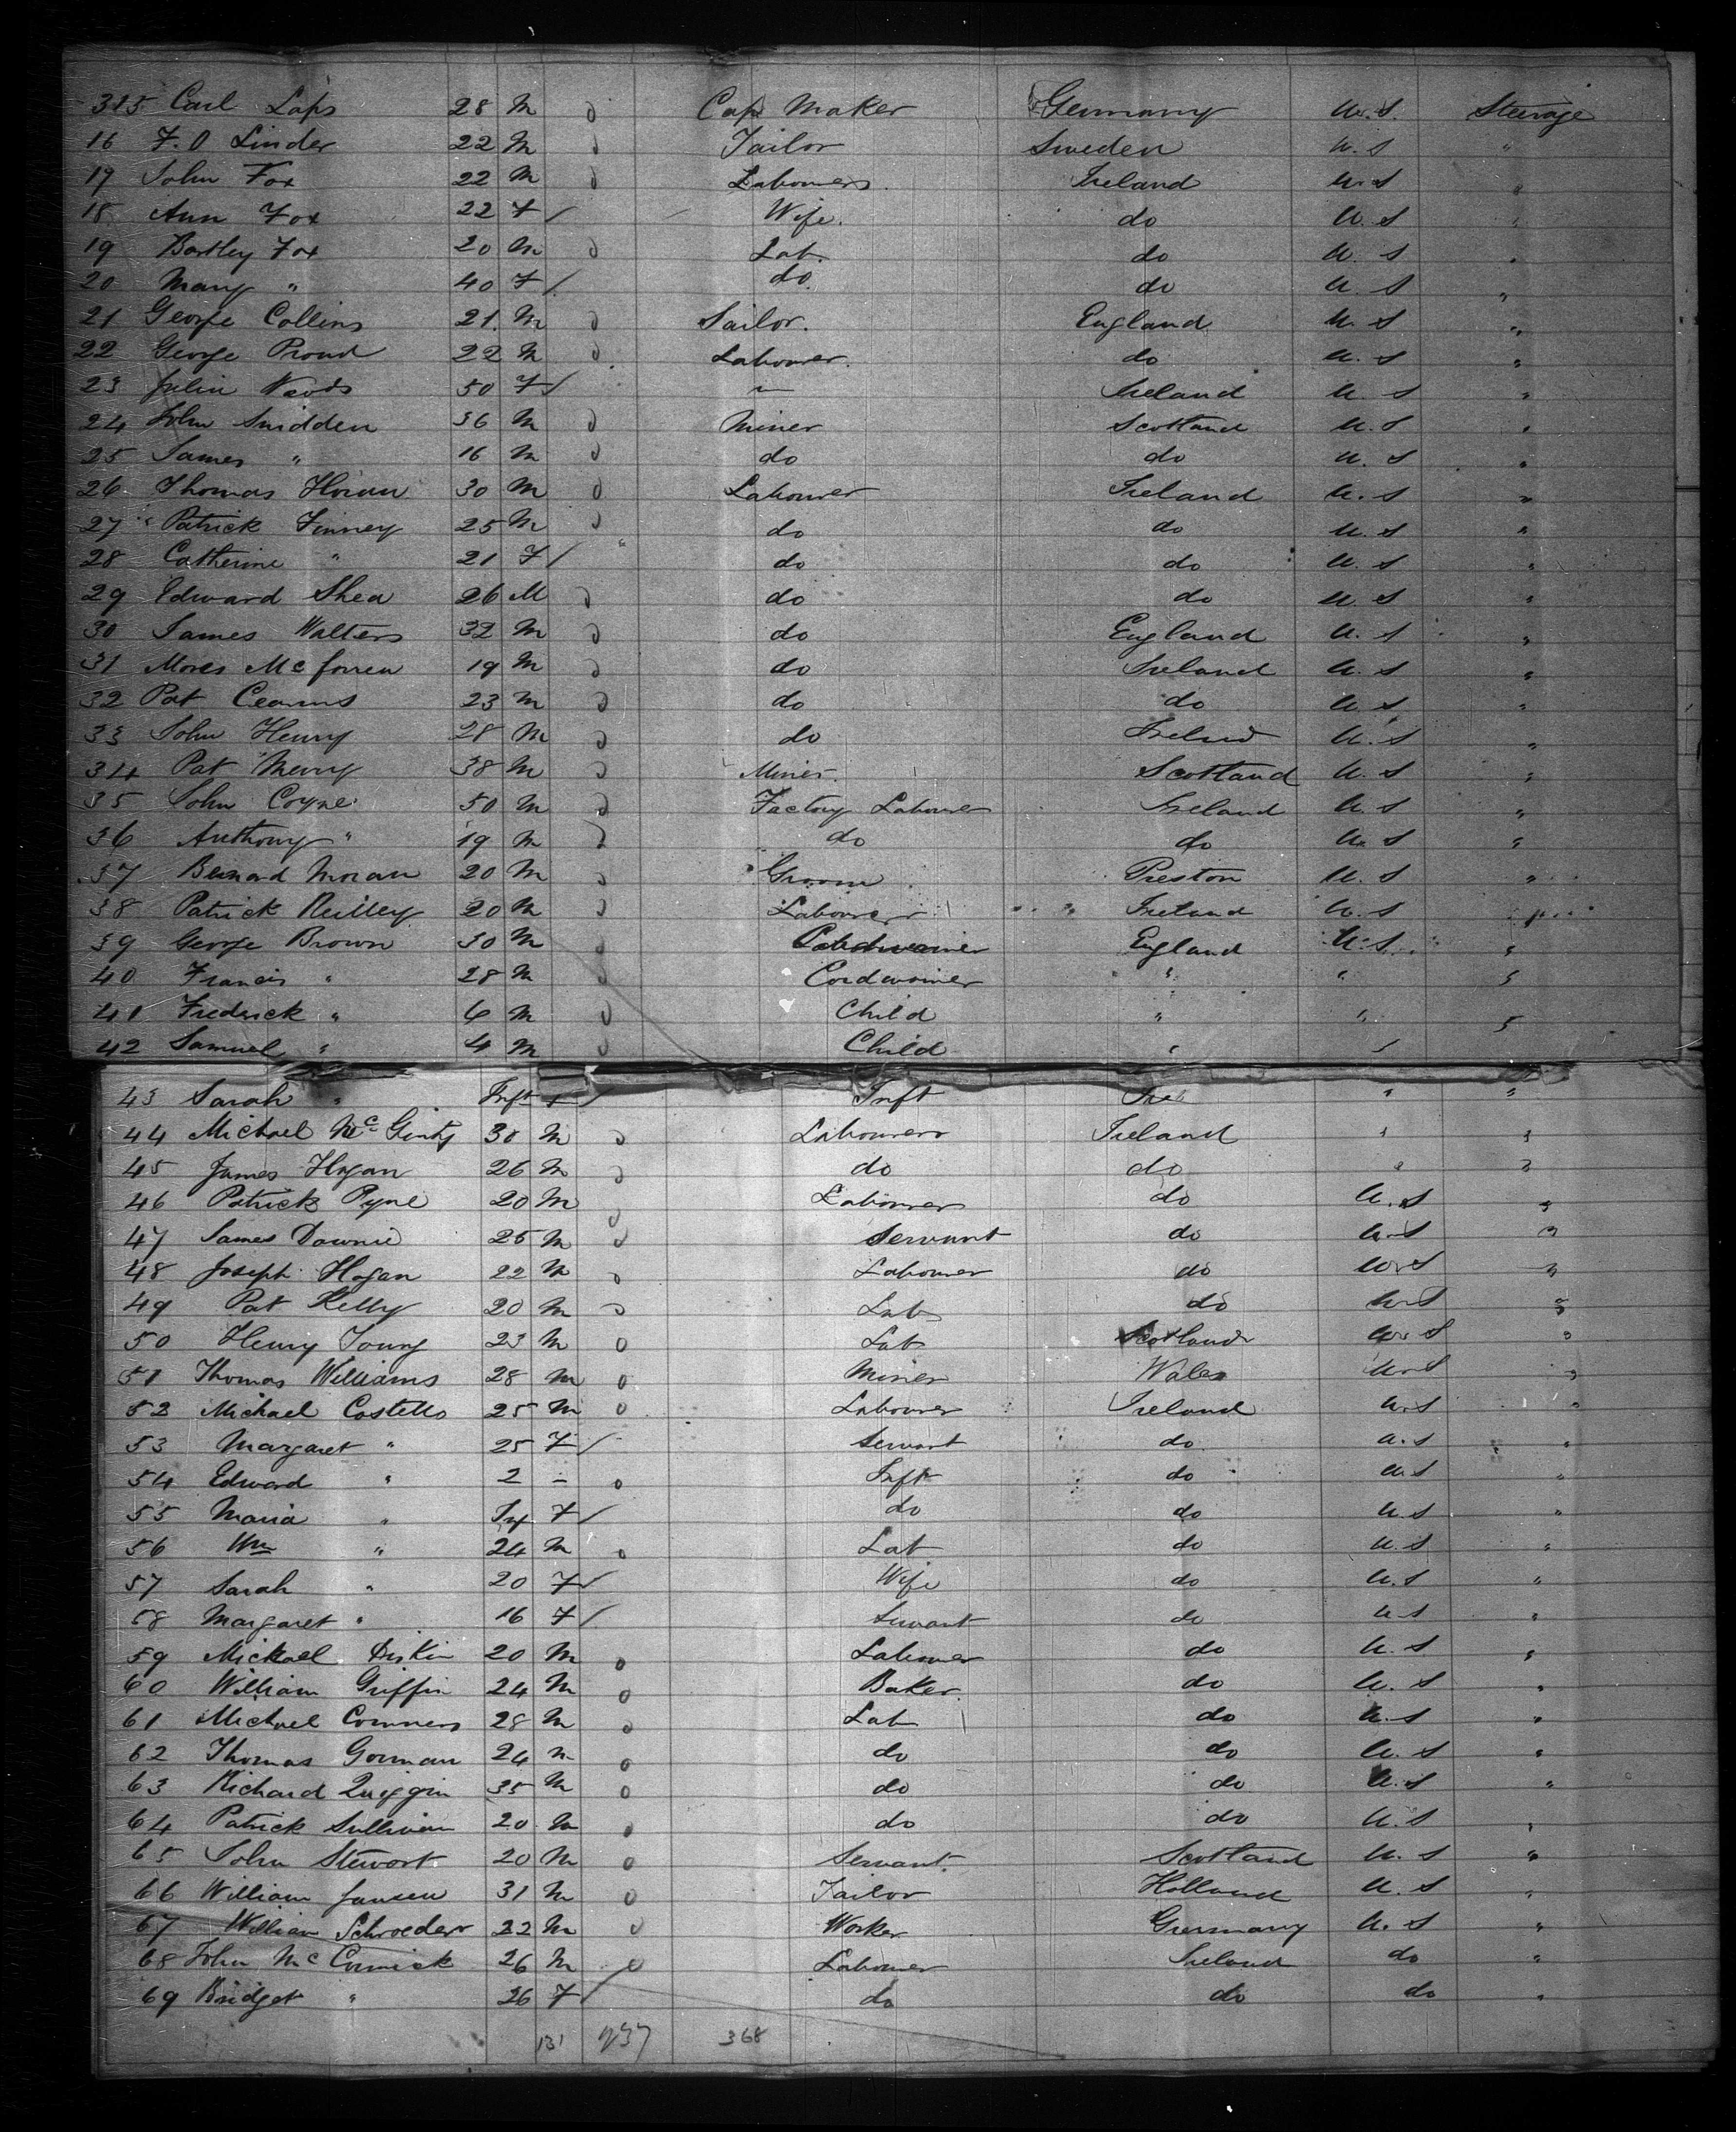 315 Carl Laps 28 M Cap Maker Germany U.S. Steerage
16 F. O Linder 22 M Tailor Sweden U.S "
17 John Fox 22 M Labourers Ireland U.S "
18 Ann Fox 22 F / Wife. do U.S "
19 Bartley Fox 20 M Lab. do U.S "
20 Mary " 40 F / do do U.S "
21 George Collins 21. M Sailor. England U.S "
22 George Proud 22 M Labourer. do U.S "
23 Julia Woods 50 F / ~ Ireland U.S "
24 John Snidden 36 M Miner Scotland U.S "
25 James " 16 M do do U.S "
26 Thomas Horan 30 M Labourer Ireland U.S "
27 Patrick Finney 25 M do do U.S "
28 Catherine " 21 F / do do U.S "
29 Edward Shea 26 M do do U.S "
30 James Walters 32 M do England U.S "
31 Mc 19 M do Ireland U.S "
32 Pat Cearns 23 M do do U.S "
33 John Henry 28 M do Irelnd U.S "
34 Pat Merry 38 M Miner. Scotland U.S "
35 John Coyne 50 M Factory Labourer Ireland U.S "
36 Anthony " 19 M do do U.S "
37 Bernard Moran 20 M Groom Preston U.S "
38 Patrick Reilley 20 M Labourer Ireland U.S "
39 George Brown 30 M England U.S. "
40 Francis " 28 M Cordwainer " " "
41 Fredrick " 6 M Child " " "
42 Samuel " 4 M Child " " "
43 Sarah " Inft F / Inft Ire " "
44 Michael McGinty 30 M Labourer Ireland " "
45 James Hogan 26 M do do " "
46 Patrick Pyne 20 M Labourer do U.S "
47 James Downie 25 M Servant do U.S "
48 Joseph Hogan 22 M Labourer do U.S "
49 Pat Kelly 20 M Lab do U.S "
50 Henry Young 23 M Lab Scotland U.S "
51 Thomas Williams 28 M Miner Wales U.S "
52 Michael Costello 25 M Labourer Ireland U.S "
53 Margaret " 25 F / Servant do U.S "
54 Edward " 2 - Inft do U.S "
55 Maria " F / do do U.S "
56 Wm " 24 M Lab do U.S "
57 Sarah " 20 F / Wife do U.S "
58 Margaret " 16 F / Servant do U.S "
59 Michael Diskin 20 M Labourer do U.S "
60 William Griffin 24 M Baker. do U.S "
61 Michael Conners 28 M Lab do U.S "
62 Thomas Gorman 24 M do do U.S "
63 Richard Quiggin 35 M do do U.S "
64 Patrick Sullivan 20 M do do U.S "
65 John Stewort 20 M Servant. Scotland U.S "
66 William Jansen 31 M Tailor Holland U.S "
67 William Schroeder 22 M Worker Germany U.S "
68 John McCormick 26 M Labourer Ireland do "
69 Bridget " 26 F / do do do "
131 237 368